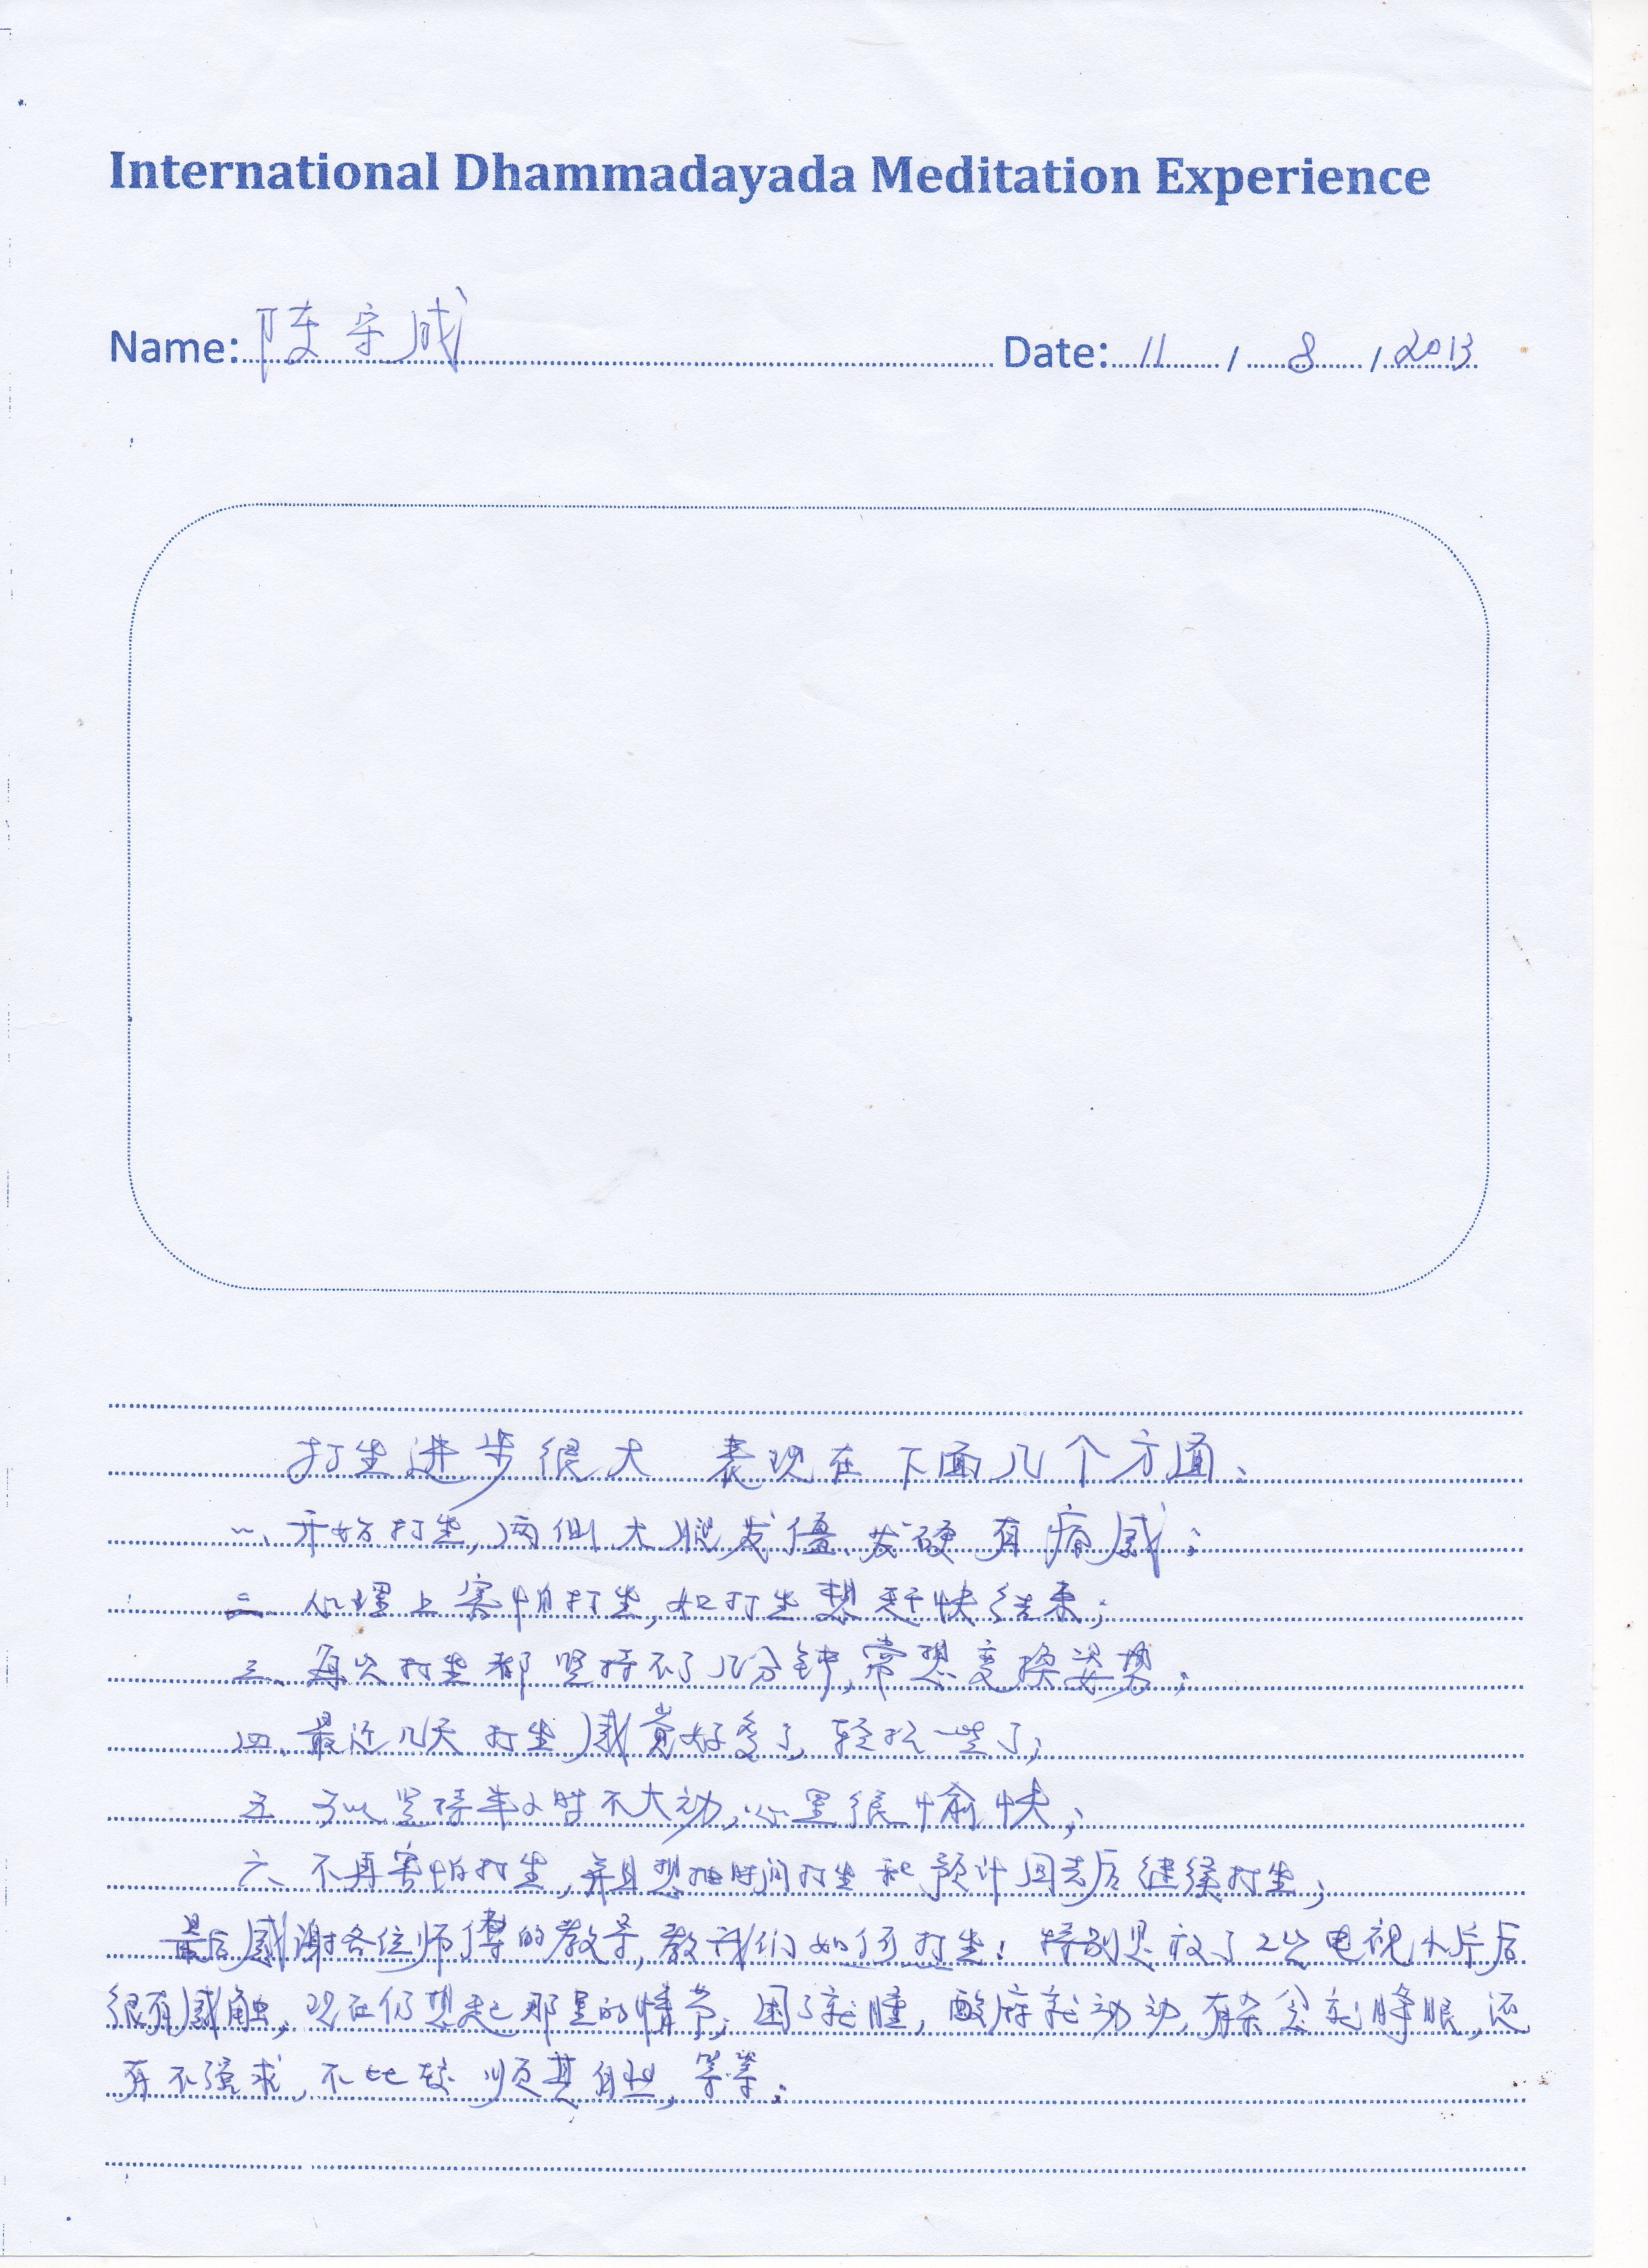 International Dhammadayada Meditation Experience
Name: 陈宗成 Date: 11 / 8 / 2013
打坐进步很大 表现在下面几个方面、
一、开始打坐,两侧大腿发僵、发硬有痛感;
二、心理上害怕打坐,如打坐想赶快结束;
三、每次打坐都坚持不了几分钟,常想变换姿势;
四、最近几天打坐感觉好多了,轻松一些了;
五 可以坚持半小时不大动,心里很愉快;
六、不再害怕打坐,并且想抽时间打坐和预计回去后继续打坐;
最后感谢各位师傅的教导,教我们如何打坐!特别是放了2次电视小片后
很有感触,现在仍想起那里的情节,困了就睡,酸麻就动动,有杂念就睁眼,还
有不强求,不比较 顺其自然,等等.